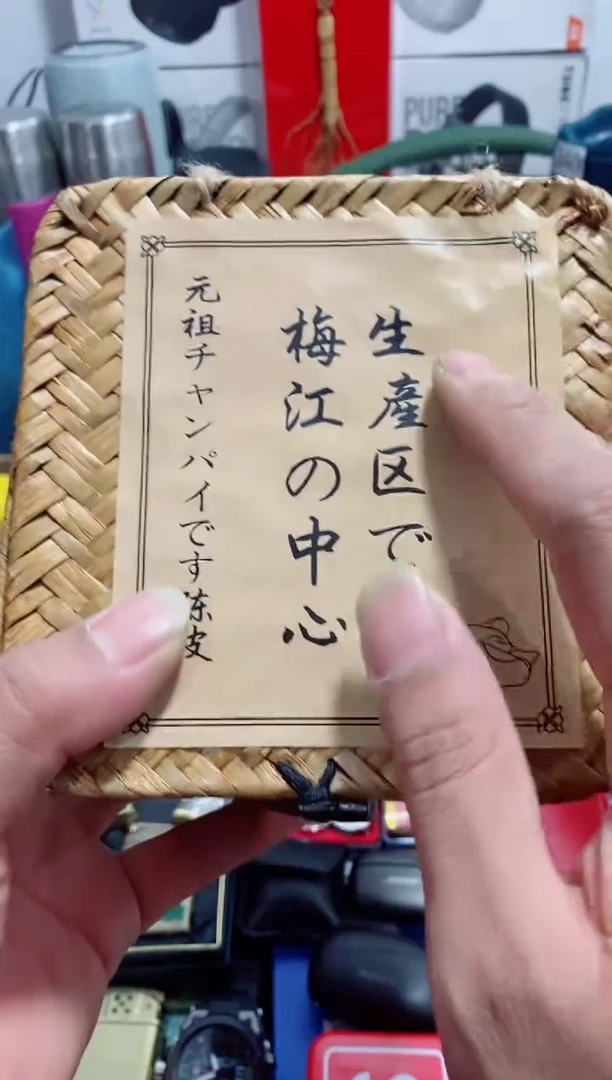 生産区で
梅江の中心
元祖チャンパイです陳皮
PURE
PURE